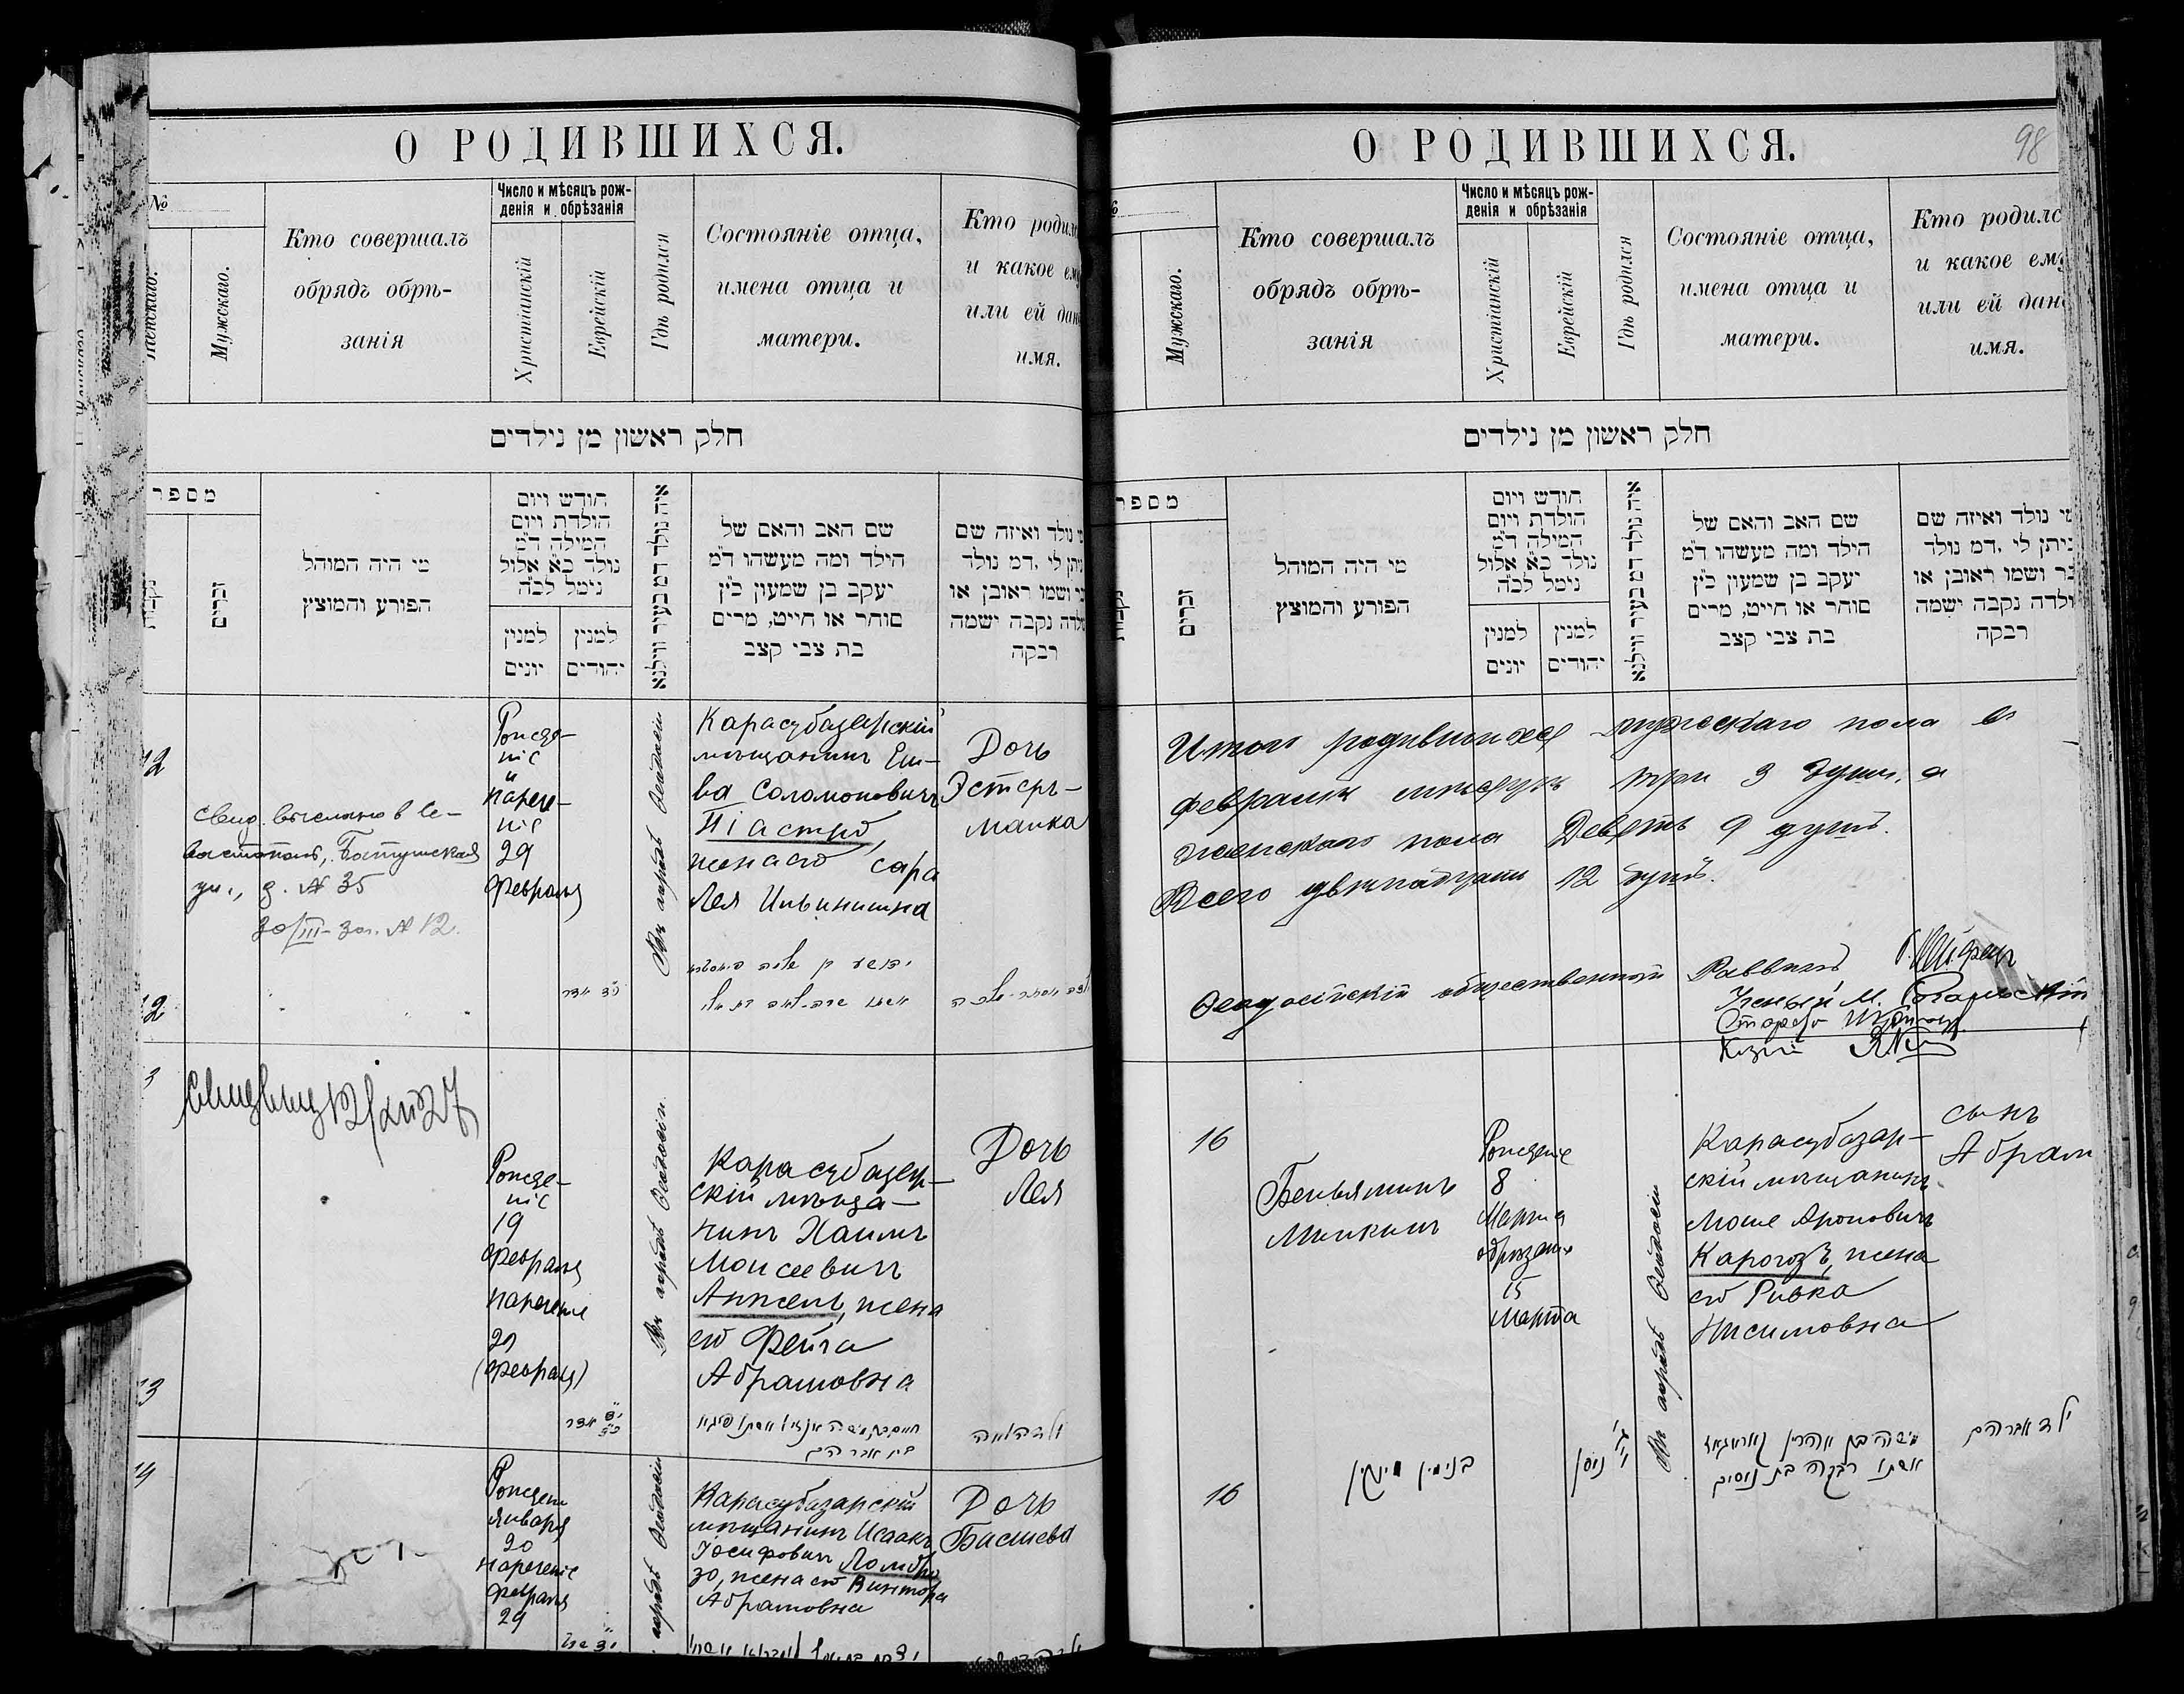 О РОДИВШИХСЯ.
№
Женскаго.
Мужскаго.
Кто совершалъ
обрядъ обрѣ-
занія
Число и мѣсяцъ рож-
денія и обрѣзанія
Христіанскій
Еврейскій
Гдѣ родился
Состояніе отца,
имена отца и
матери.
Кто родилс
и какое ему
или ей дано
имя.
חלק ראשון מן נילדים
מספר
זכרים
מי היה המוהל
הפורע והמוצץ
חודש ויום
הולדת ויום
המילה ד״מ
נולד כ״א אלול
נימל לכ״ה
למנין
יונים
למנין
יהודים
איה נולד דמ בעיר ווילנא
שם האב והאם של
הילד ומה מעשהו ד״מ
יעקב בן שמעון כ״ץ
סוחר או חייט, מרים
בת צבי קצב
מי נולד ואיזה שם
ניתן לו, דמ נולד
ושמו ראובן או
ילדה נקבה ישמה
רבקה
12
свид. выслано в Се-
вастополь, Батумская
ул., д. № 35
30/III- № 12.
Рожде-
ніе
и
нарече-
ніе
29
февраля
Въ городѣ Ѳеодосіи
Карасубазарскій
мѣщанинъ Еш-
ва Соломоновичъ
Піастро,
жена его Сара
Лея Ильинишна
Дочь
Эстеръ-
Малка
12
3
Рожде-
ніе
19
февраля
нареченіе
29
февраля
Въ городѣ Ѳеодосіи.
Карасубазар-
скій мѣща-
нинъ Хаимъ
Моисеевичъ
Анжелъ, жена
его Фейга
Абрамовна
Дочь
Лея
13
14
Рожденіе
Января
20
нареченіе
февраля
29
городѣ Ѳеодосіи
Карасубазарскій
мѣщанинъ Исаакъ
Іосифовичъ Ломбро
зо, жена его Виктора
Абрамовна
Дочь
Басшева
О РОДИВШИХСЯ.
98
Мужскаго.
Кто совершалъ
обрядъ обрѣ-
занія
Число и мѣсяцъ рож-
денія и обрѣзанія
Христіанскій
Еврейскій
Гдѣ родился
Состояніе отца,
имена отца и
матери.
Кто родилс
и какое ему
или ей дано
имя.
חלק ראשון מן נילדים
מספר
זכרים
מי היה המוהל
הפורע והמוצץ
חודש ויום
הולדת ויום
המילה ד״מ
נולד כ״א אלול
נימל לכ״ה
למנין
יונים
למנין
יהודים
איה נולד דמ בעיר ווילנא
שם האב והאם של
הילד ומה מעשהו ד״מ
יעקב בן שמעון כ״ץ
סוחר או חייט, מרים
בת צבי קצב
מי נולד ואיזה שם
ניתן לו, דמ נולד
ושמו ראובן או
ילדה נקבה ישמה
רבקה
Итого родившихся мужескаго пола въ
февралѣ мѣсяцѣ три 3 души, а
женскаго пола Девять 9 душъ.
Всего двѣнадцать 12 душъ.
Ѳеодосійскій общественный Раввинъ
Ученый М.
Староста
16
Беньяминъ
Минкинъ
Рожденіе
8
Марта
обрѣзаніе
15
Марта
Въ городѣ Ѳеодосіи
Карасубазар-
скій мѣщанинъ
Моше Ароновичъ
Карогозъ, жена
его Ривка
Нисимовна
сынъ
Абрам
16
בנימין מינקין
ניסן
משה בן אהרין קאראגאז
אשתו רבקה בת ניסים
ילד אברהם